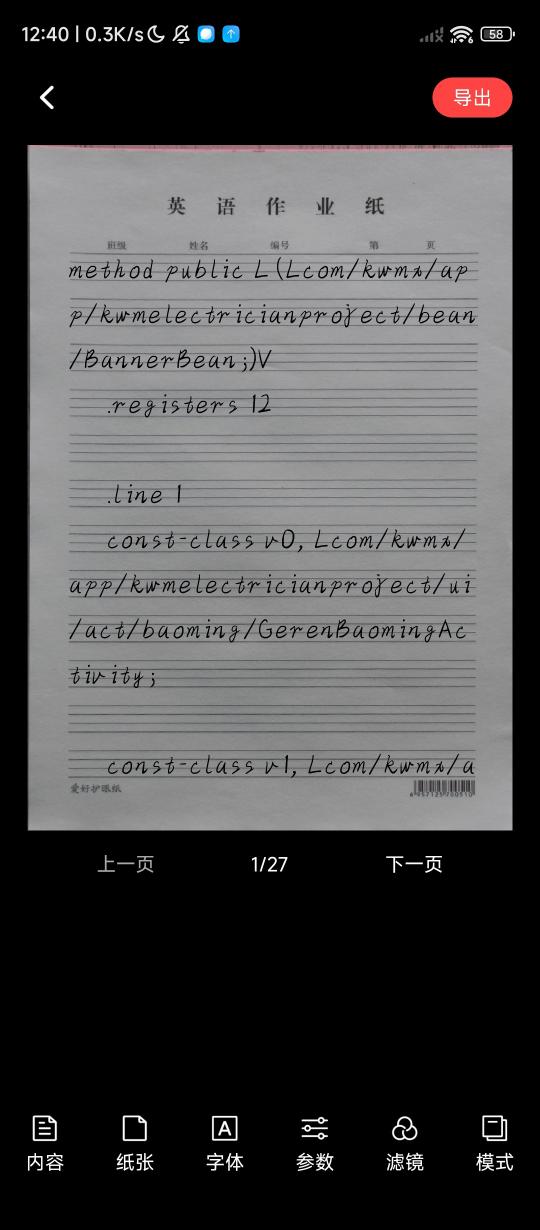 12:40 | 0.3K/s
58
导出
英语作业纸
班级 姓名 编号 第 页
method public L(Lcom/kwmx/ap
p/kwmelectricianproject/bean
/BannerBean;)V
.registers 12
.line 1
const-class v0, Lcom/kwmx/
app/kwmelectricianproject/ui
/act/baoming/GerenBaomingAc
tivity;
const-class v1, Lcom/kwmx/a
爱好护眼纸
上一页 1/27 下一页
内容 纸张 字体 参数 滤镜 模式